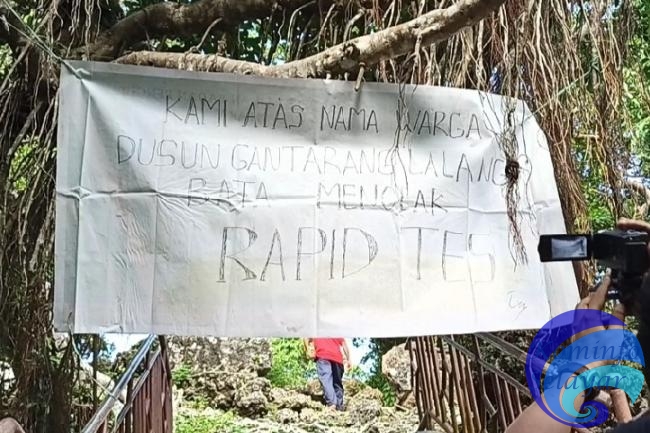 KAMI ATAS NAMA WARGA
DUSUN GANTARANG LALANG
BATA MENOLAK
RAPID TES